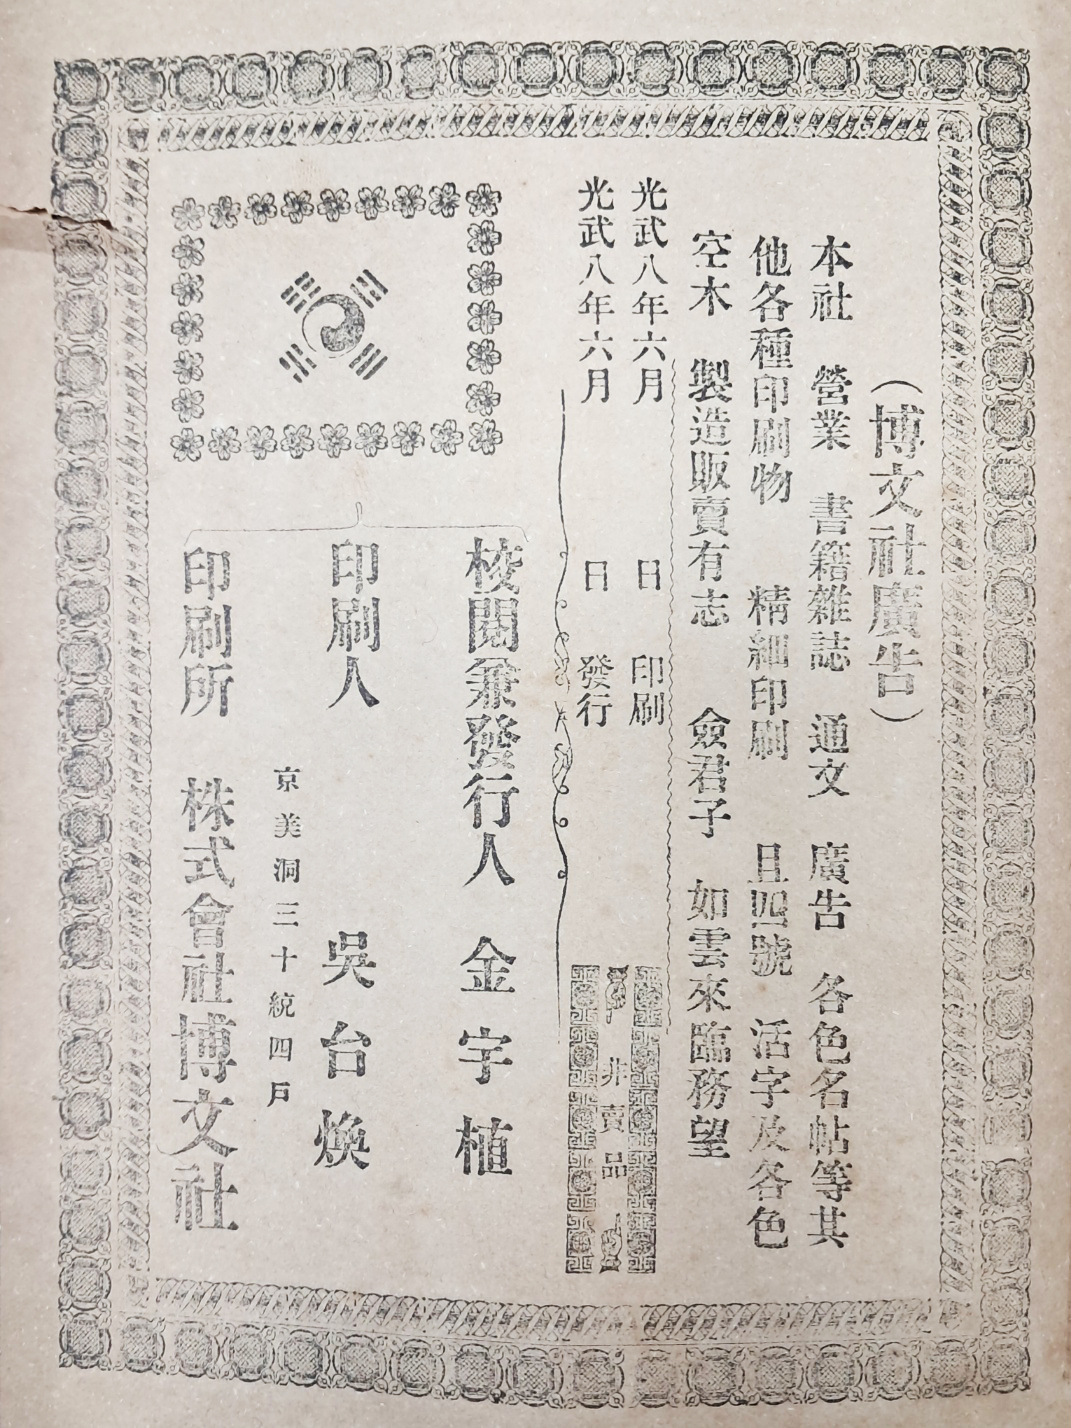 （博文社廣告）
本社　營業　書籍雜誌　通文　廣告　各色名帖等其
他各種印刷物　精細印刷　且四號　活字及各色
空木　製造販賣有志　僉君子　如雲來臨務望
光武八年六月　日　印刷
光武八年六月　日　發行
非賣品
校閱兼發行人　金宇植
印刷人　吳台煥
京美洞三十統四戶
印刷所　株式會社博文社